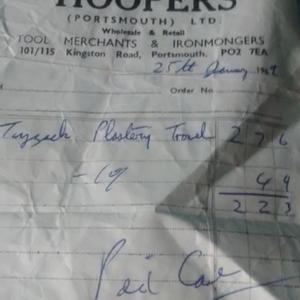 HOOPERS
(PORTSMOUTH) LTD.
Wholesale & Retail
TOOL MERCHANTS & IRONMONGERS
101/115 Kingston Road, Portsmouth. PO2 7EA
25th January 19
Order No.
Tyzack Plastery Trowel 2 7 6
4 9
2 2 3
Paid